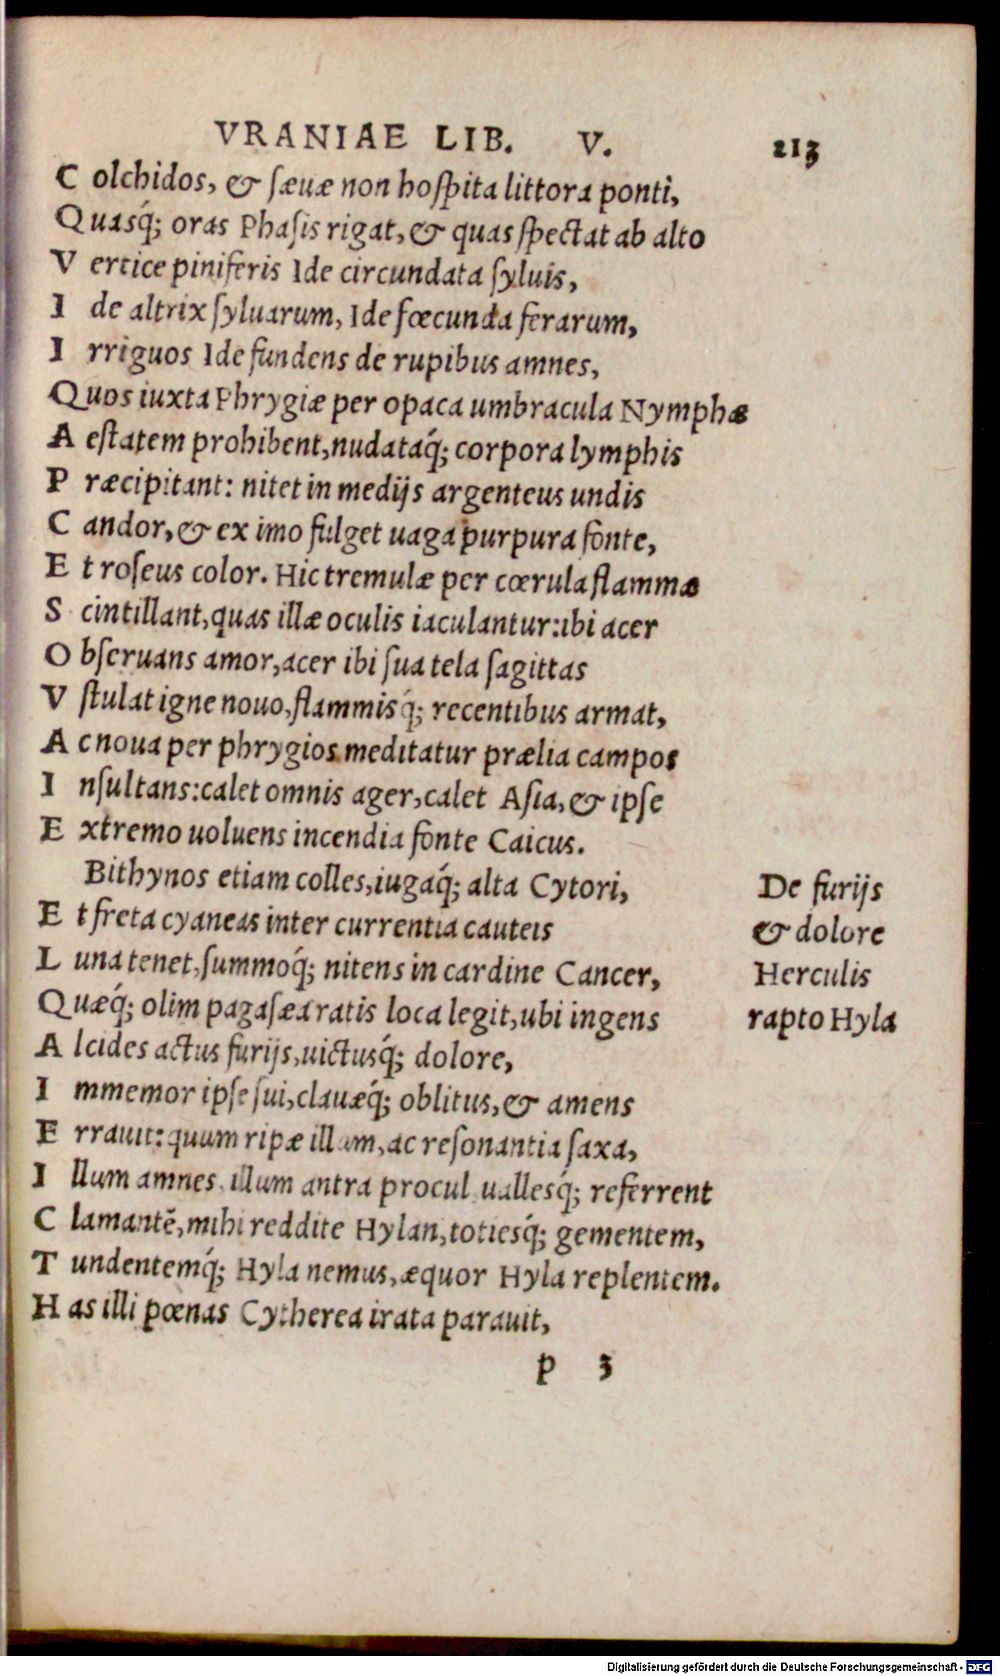 VRANIAE LIB. V. 213
C olchidos, & sæuæ non hospita littora ponti,
Quasq́; oras Phasis rigat, & quas spectat ab alto
V ertice piniferis Ide circundata syluis,
I de altrix syluarum, Ide fœcunda ferarum,
I rriguos Ide fundens de rupibus amnes,
Quos iuxta Phrygiæ per opaca umbracula Nymphæ
A estatem prohibent, nudataq́; corpora lymphis
P ræcipitant: nitet in medijs argenteus undis
C andor, & ex imo fulget uaga purpura fonte,
E t roseus color. Hic tremulæ per cœrula flammæ
S cintillant, quas illæ oculis iaculantur: ibi acer
O bseruans amor, acer ibi sua tela sagittas
V stulat igne nouo, flammisq́; recentibus armat,
A c noua per phrygios meditatur prælia campos
I nsultans: calet omnis ager, calet Asia, & ipse
E xtremo uoluens incendia fonte Caicus.
Bithynos etiam colles, iugaq́; alta Cytori,
E t freta cyaneas inter currentia cauteis
L una tenet, summoq́; nitens in cardine Cancer,
Quæq́; olim pagasæa ratis loca legit, ubi ingens
A lcides actus furijs, uictusq́; dolore,
I mmemor ipse sui, clauæq́; oblitus, & amens
E rrauit: quum ripæ illum, ac resonantia saxa,
I llum amnes, illum antra procul uallesq́; referrent
C lamantē, mihi reddite Hylan, totiesq́; gementem,
T undentemq́; Hyla nemus, æquor Hyla replentem.
H as illi pœnas Cytherea irata parauit,
De furijs
& dolore
Herculis
rapto Hyla
p 3
Digitalisierung gefördert durch die Deutsche Forschungsgemeinschaft - DFG